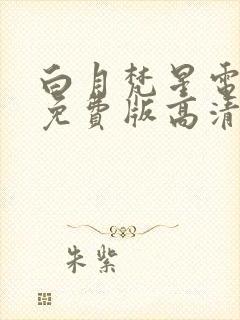 白月梵星電
免費版高清
朱紫